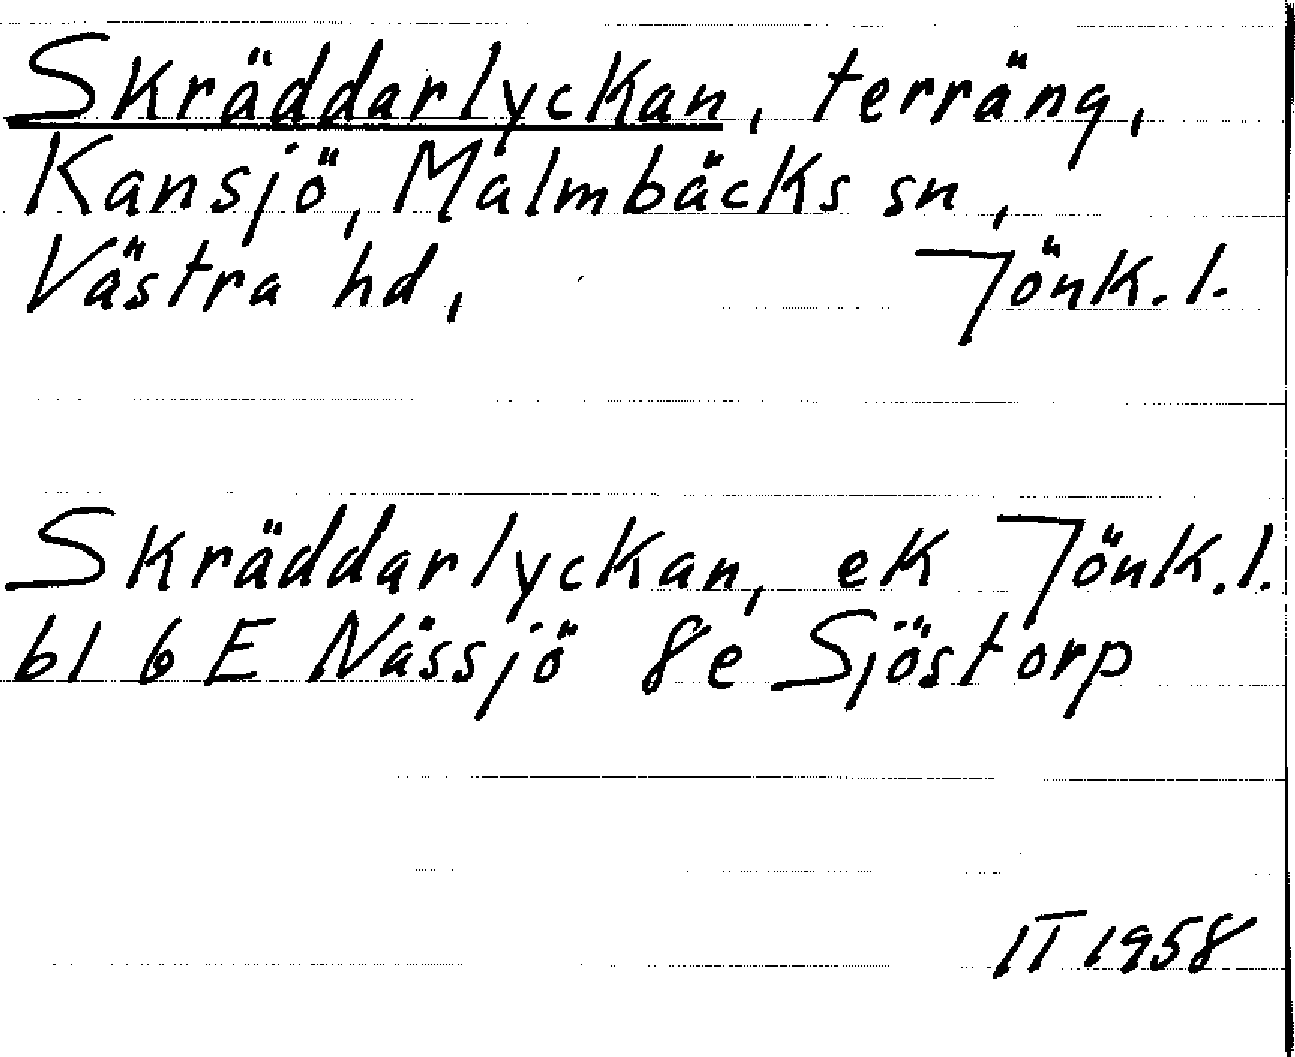 Skräddarlyckan, terräng,
Kansjö, Malmbäcks sn,
Västra hd, Jönk.l.
Skräddarlyckan, ek Jönk.l.
bl 6E Nässjö 8e Sjöstorp
IT 1958